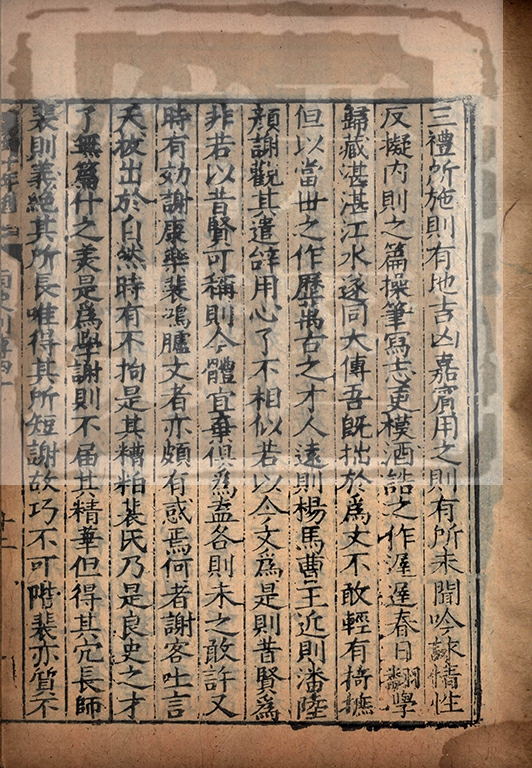 三禮所施則有地吉凶嘉賓用之則有所未聞吟詠情性
反擬內則之篇操筆寫志更模酒誥之作遲遲春日翻學
歸藏湛湛江水遂同大傳吾旣拙於爲文不敢輕有掎摭
但以當世之作歷萬古之才人遠則楊馬曹王近則潘陸
顏謝觀其遣辭用心了不相似若以今文爲是則昔賢爲
非若以昔賢可稱則今體宜棄俱爲盍各則未之敢許又
時有効謝康樂裴鴻臚文者亦頗有惑焉何者謝客吐言
天拔出於自然時有不拘是其糟粕裴氏乃是良史之才
了無篇什之美是爲學謝則不届其精華但得其冗長師
裴則義絶其所長唯得其所短謝故巧不可階裴亦質不